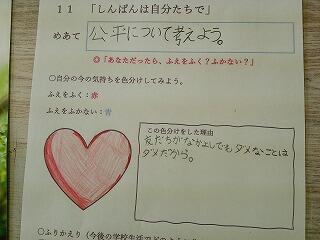 11 「しんぱんは自分たちで」
めあて 公平について考えよう。
◎「あなただったら、ふえをふく？ふかない？」
〇自分の今の気持ちを色分けしてみよう。
ふえをふく：赤
ふえをふかない：青
この色分けをした理由
友だちがなかよしでもダメなことは
ダメだから。
〇ふりかえり（今後の学校生活でどの